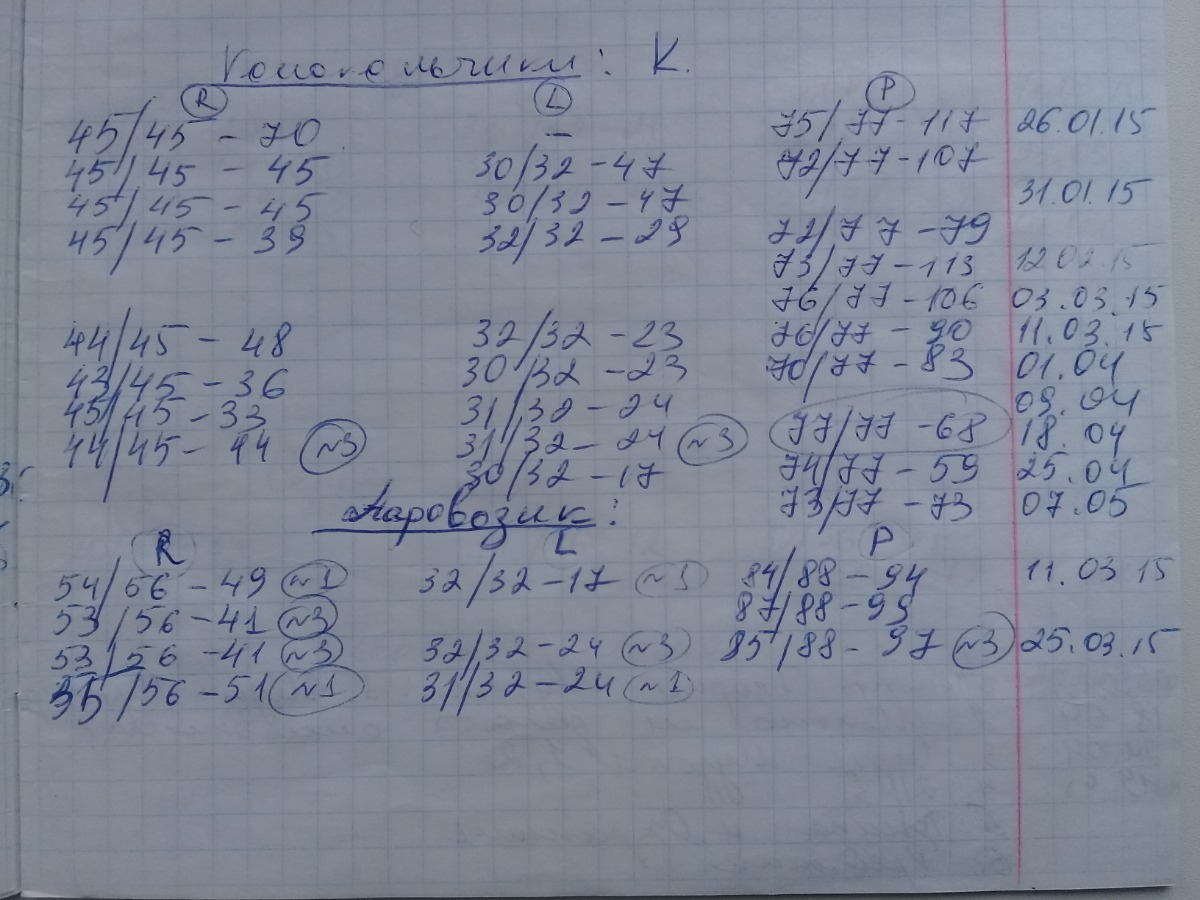 Колокольчики: К.
R L P
45/45 - 70 — 75/77-117 26.01.15
45/45 - 45 30/32-47 72/77-107
45/45 - 45 30/32-47 31.01.15
45/45 - 39 32/32-29 72/77-79
73/77-113 12.02.15
76/77-106 03.03.15
44/45 - 48 32/32-23 76/77-90 11.03.15
43/45-36 30/32-23 70/77-83 01.04
45/45-33 31/32-24 09.04
44/45-44 ~3 31/32-24 ~3 77/77-68 18.04
30/32-17 74/77-59 25.04
Паровозик: 73/77-73 07.05
R L P
54/56-49 ~1 32/32-17 ~1 84/88-94 11.03 15
53/56-41 ~3 87/88-93
53/56-41 ~3 32/32-24 ~3 85/88-97 ~3 25.03.15
/56-51 ~1 31/32-24 ~1